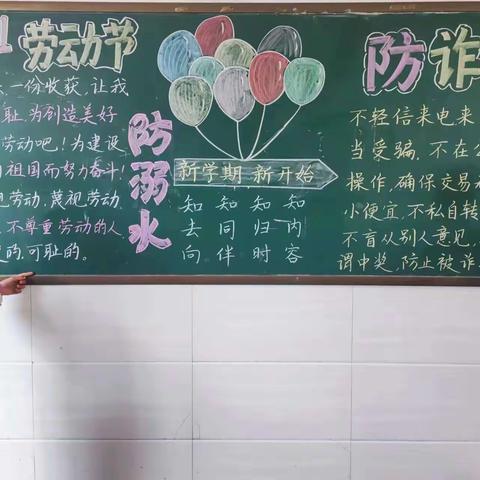 劳动节
一份收获,让我
耻,为创造美好
劳动吧!为建设
祖国而努力奋斗!
劳动,蔑视劳动,
不尊重劳动的人
的,可耻的。
防溺水
新学期 新开始
知 知 知 知
去 同 归 内
向 伴 时 容
防诈
不轻信来电来
当受骗,不在公
操作,确保交易
小便宜,不私自转
不盲从别人意见,
谓中奖,防止被诈